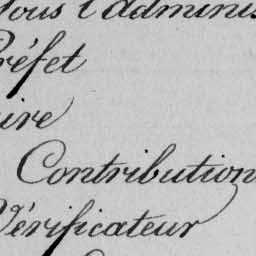 sous l'adminis
réfet
ire
Contribution
Vérificateur